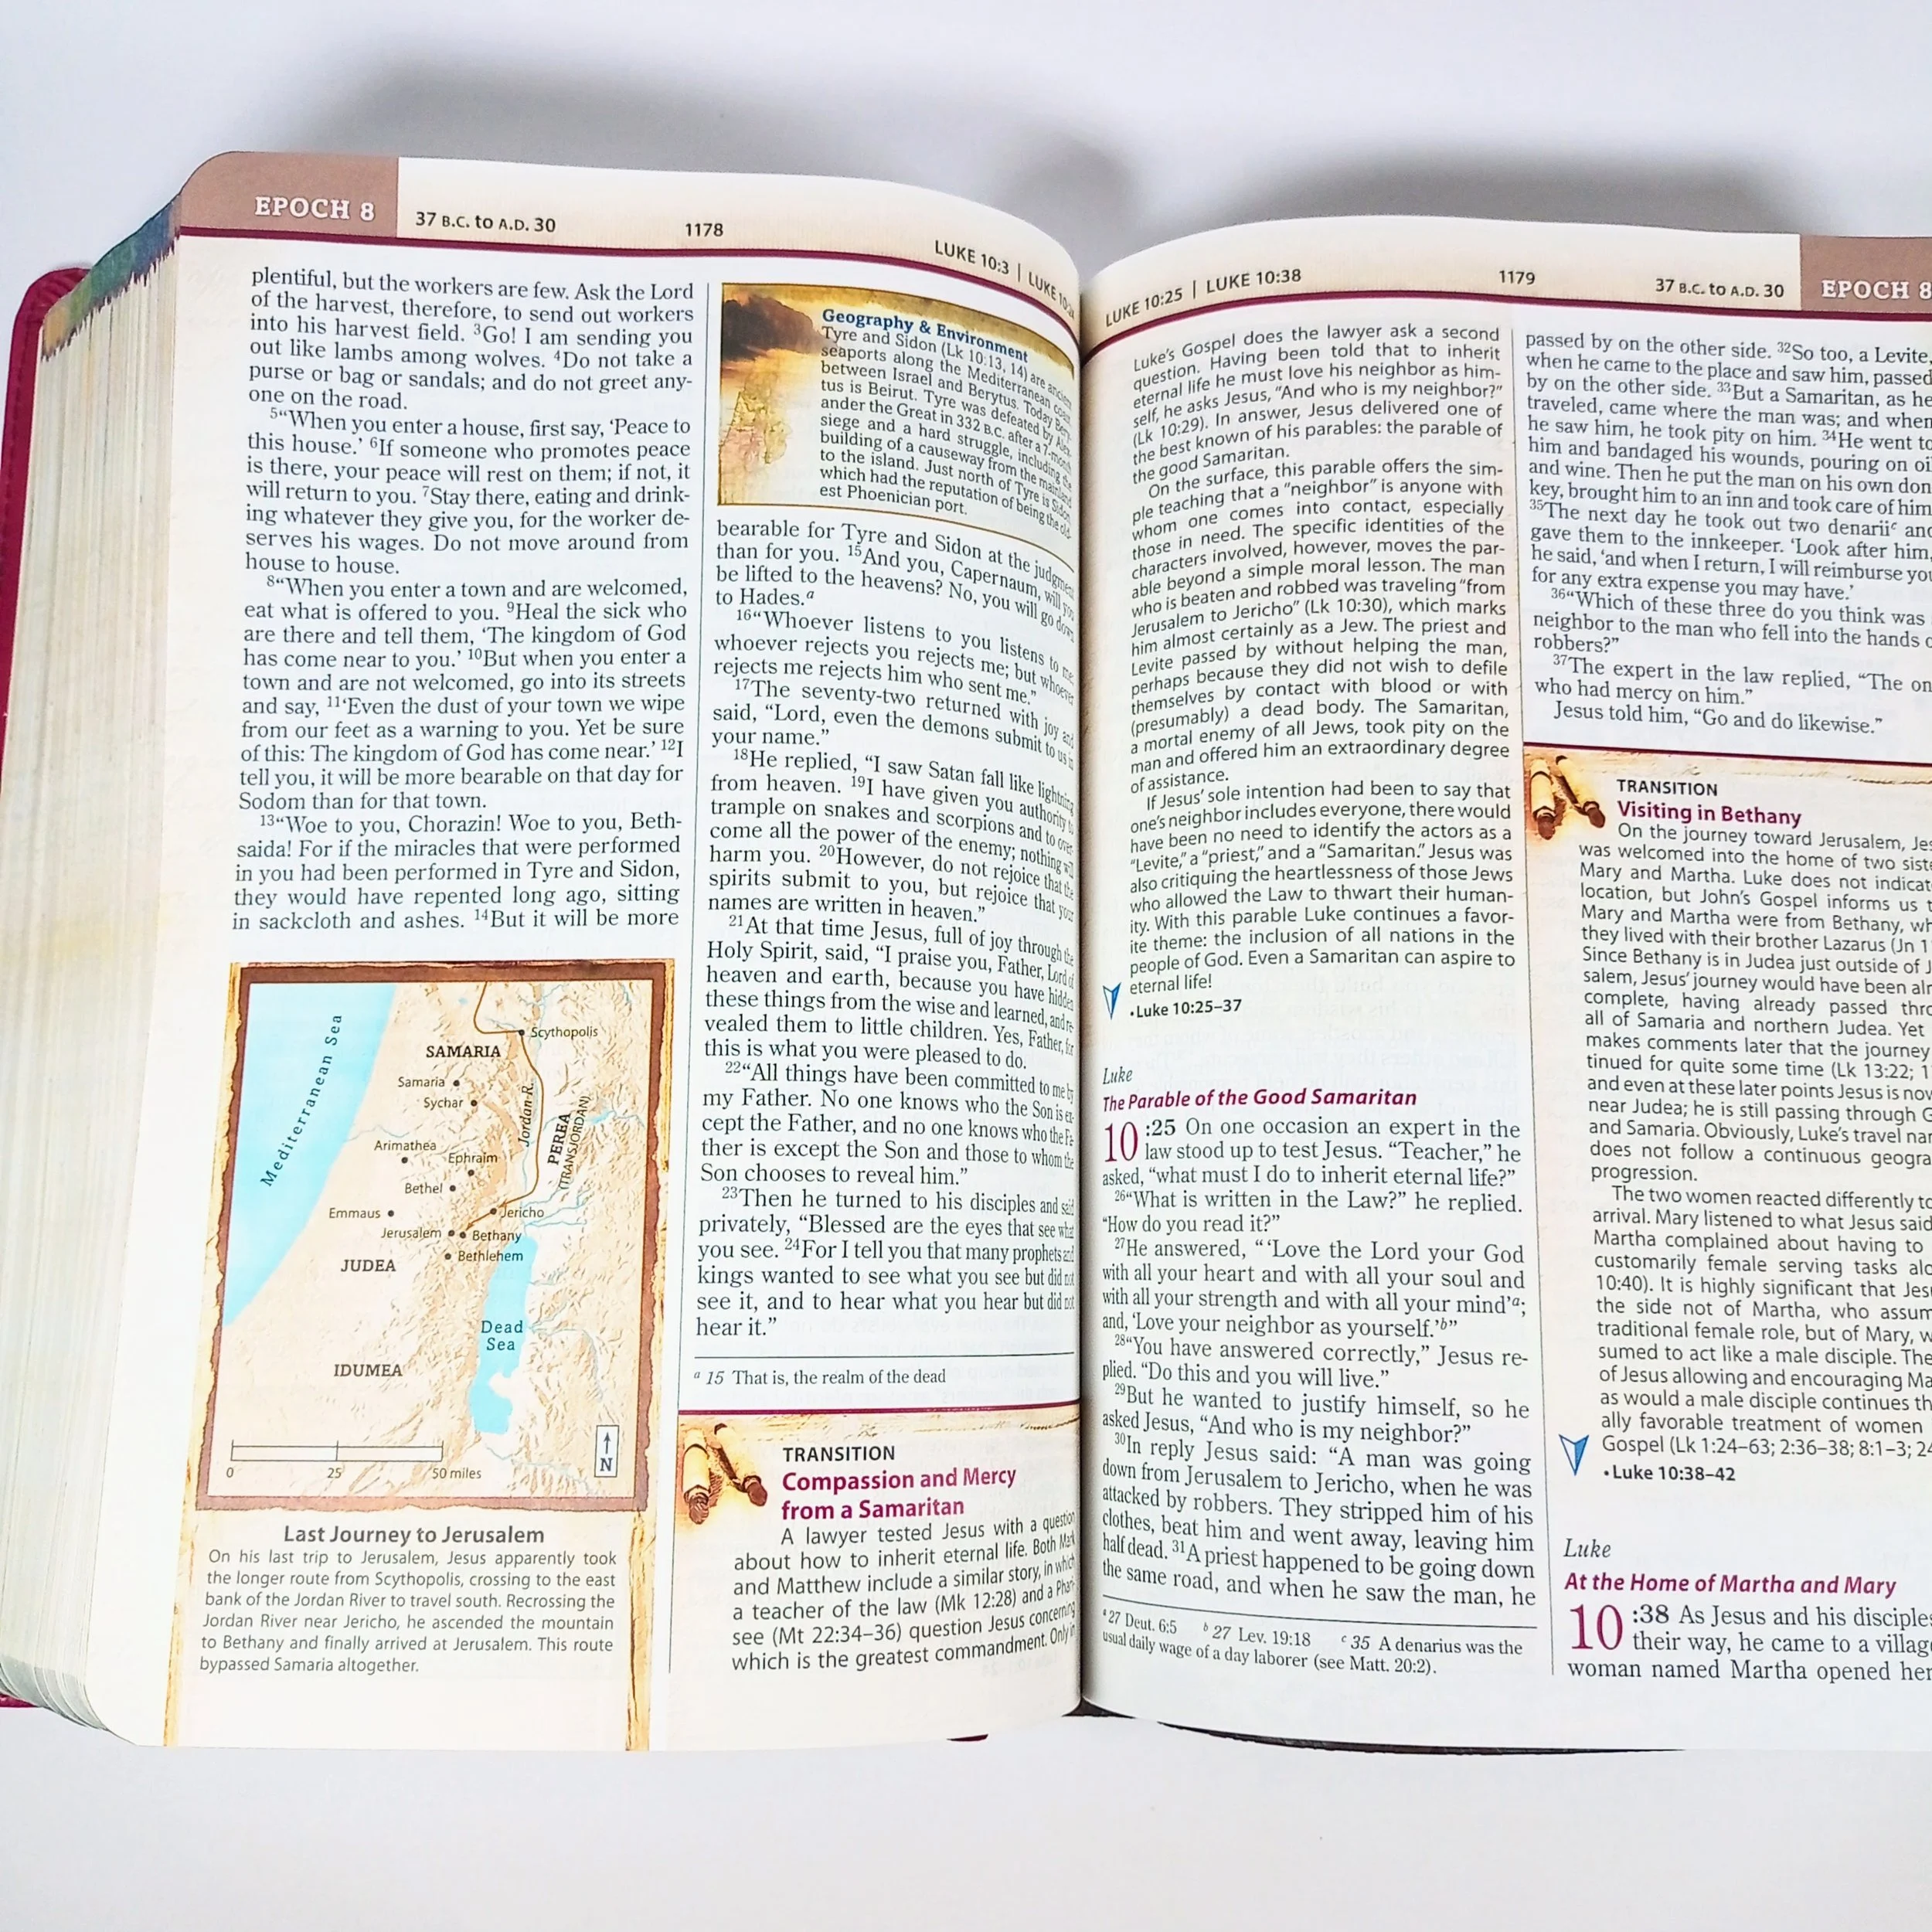 EPOCH 8
37 B.C. to A.D. 30
1178
LUKE 10:3 | LUKE
plentiful, but the workers are few. Ask the Lord
of the harvest, therefore, to send out workers
into his harvest field. 3Go! I am sending you
out like lambs among wolves. 4Do not take a
purse or bag or sandals; and do not greet any-
one on the road.
5“When you enter a house, first say, ‘Peace to
this house.’ 6If someone who promotes peace
is there, your peace will rest on them; if not, it
will return to you. 7Stay there, eating and drink-
ing whatever they give you, for the worker de-
serves his wages. Do not move around from
house to house.
8“When you enter a town and are welcomed,
eat what is offered to you. 9Heal the sick who
are there and tell them, ‘The kingdom of God
has come near to you.’ 10But when you enter a
town and are not welcomed, go into its streets
and say, 11‘Even the dust of your town we wipe
from our feet as a warning to you. Yet be sure
of this: The kingdom of God has come near.’ 12I
tell you, it will be more bearable on that day for
Sodom than for that town.
13“Woe to you, Chorazin! Woe to you, Beth-
saida! For if the miracles that were performed
in you had been performed in Tyre and Sidon,
they would have repented long ago, sitting
in sackcloth and ashes. 14But it will be more
Mediterranean Sea
Scythopolis
SAMARIA
Samaria
Sychar
Jordan R.
PEREA
(TRANSJORDAN)
Arimathea
Ephraim
Bethel
Emmaus
Jericho
Jerusalem
Bethany
Bethlehem
JUDEA
Dead
Sea
IDUMEA
0 25 50 miles
N
Last Journey to Jerusalem
On his last trip to Jerusalem, Jesus apparently took
the longer route from Scythopolis, crossing to the east
bank of the Jordan River to travel south. Recrossing the
Jordan River near Jericho, he ascended the mountain
to Bethany and finally arrived at Jerusalem. This route
bypassed Samaria altogether.
Geography & Environment
Tyre and Sidon (Lk 10:13, 14) are ancient
seaports along the Mediterranean coast
between Israel and Berytus. Today Bery-
tus is Beirut. Tyre was defeated by Alex-
ander the Great in 332 B.C. after a 7-month
siege and a hard struggle, including the
building of a causeway from the mainland
to the island. Just north of Tyre is Sidon,
which had the reputation of being the old-
est Phoenician port.
bearable for Tyre and Sidon at the judgment
than for you. 15And you, Capernaum, will you
be lifted to the heavens? No, you will go down
to Hades.a
16“Whoever listens to you listens to me;
whoever rejects you rejects me; but whoever
rejects me rejects him who sent me.”
17The seventy-two returned with joy and
said, “Lord, even the demons submit to us in
your name.”
18He replied, “I saw Satan fall like lightning
from heaven. 19I have given you authority to
trample on snakes and scorpions and to over-
come all the power of the enemy; nothing will
harm you. 20However, do not rejoice that the
spirits submit to you, but rejoice that your
names are written in heaven.”
21At that time Jesus, full of joy through the
Holy Spirit, said, “I praise you, Father, Lord of
heaven and earth, because you have hidden
these things from the wise and learned, and re-
vealed them to little children. Yes, Father, for
this is what you were pleased to do.
22“All things have been committed to me by
my Father. No one knows who the Son is ex-
cept the Father, and no one knows who the Fa-
ther is except the Son and those to whom the
Son chooses to reveal him.”
23Then he turned to his disciples and said
privately, “Blessed are the eyes that see what
you see. 24For I tell you that many prophets and
kings wanted to see what you see but did not
see it, and to hear what you hear but did not
hear it.”
a 15 That is, the realm of the dead
TRANSITION
Compassion and Mercy
from a Samaritan
A lawyer tested Jesus with a question
about how to inherit eternal life. Both Mark
and Matthew include a similar story, in which
a teacher of the law (Mk 12:28) and a Phari-
see (Mt 22:34–36) question Jesus concerning
which is the greatest commandment. Only in
LUKE 10:25 | LUKE 10:38
1179
37 B.C. to A.D. 30
EPOCH 8
Luke’s Gospel does the lawyer ask a second
question. Having been told that to inherit
eternal life he must love his neighbor as him-
self, he asks Jesus, “And who is my neighbor?”
(Lk 10:29). In answer, Jesus delivered one of
the best known of his parables: the parable of
the good Samaritan.
On the surface, this parable offers the sim-
ple teaching that a “neighbor” is anyone with
whom one comes into contact, especially
those in need. The specific identities of the
characters involved, however, moves the par-
able beyond a simple moral lesson. The man
who is beaten and robbed was traveling “from
Jerusalem to Jericho” (Lk 10:30), which marks
him almost certainly as a Jew. The priest and
Levite passed by without helping the man,
perhaps because they did not wish to defile
themselves by contact with blood or with
(presumably) a dead body. The Samaritan,
a mortal enemy of all Jews, took pity on the
man and offered him an extraordinary degree
of assistance.
If Jesus’ sole intention had been to say that
one’s neighbor includes everyone, there would
have been no need to identify the actors as a
“Levite,” a “priest,” and a “Samaritan.” Jesus was
also critiquing the heartlessness of those Jews
who allowed the Law to thwart their human-
ity. With this parable Luke continues a favor-
ite theme: the inclusion of all nations in the
people of God. Even a Samaritan can aspire to
eternal life!
•Luke 10:25–37
Luke
The Parable of the Good Samaritan
10:25 On one occasion an expert in the
law stood up to test Jesus. “Teacher,” he
asked, “what must I do to inherit eternal life?”
26“What is written in the Law?” he replied.
“How do you read it?”
27He answered, “ ‘Love the Lord your God
with all your heart and with all your soul and
with all your strength and with all your mind’a;
and, ‘Love your neighbor as yourself.’b”
28“You have answered correctly,” Jesus re-
plied. “Do this and you will live.”
29But he wanted to justify himself, so he
asked Jesus, “And who is my neighbor?”
30In reply Jesus said: “A man was going
down from Jerusalem to Jericho, when he was
attacked by robbers. They stripped him of his
clothes, beat him and went away, leaving him
half dead. 31A priest happened to be going down
the same road, and when he saw the man, he
a 27 Deut. 6:5 b 27 Lev. 19:18 c 35 A denarius was the
usual daily wage of a day laborer (see Matt. 20:2).
passed by on the other side. 32So too, a Levite,
when he came to the place and saw him, passed
by on the other side. 33But a Samaritan, as he
traveled, came where the man was; and when
he saw him, he took pity on him. 34He went to
him and bandaged his wounds, pouring on oil
and wine. Then he put the man on his own don-
key, brought him to an inn and took care of him.
35The next day he took out two denariic and
gave them to the innkeeper. ‘Look after him,’
he said, ‘and when I return, I will reimburse you
for any extra expense you may have.’
36“Which of these three do you think was
neighbor to the man who fell into the hands
robbers?”
37The expert in the law replied, “The
who had mercy on him.”
Jesus told him, “Go and do likewise.”
TRANSITION
Visiting in Bethany
On the journey toward Jerusalem,
was welcomed into the home of two
Mary and Martha. Luke does not
location, but John’s Gospel informs us
Mary and Martha were from Bethany,
they lived with their brother Lazarus (Jn
Since Bethany is in Judea just outside of
salem, Jesus’ journey would have been
complete, having already passed
all of Samaria and northern Judea. Yet
makes comments later that the journey
tinued for quite some time (Lk 13:22;
and even at these later points Jesus is
near Judea; he is still passing through
and Samaria. Obviously, Luke’s travel
does not follow a continuous
progression.
The two women reacted differently
arrival. Mary listened to what Jesus said
Martha complained about having to
customarily female serving tasks
10:40). It is highly significant that
the side not of Martha, who
traditional female role, but of Mary,
sumed to act like a male disciple.
of Jesus allowing and encouraging
as would a male disciple continues
ally favorable treatment of women
Gospel (Lk 1:24–63; 2:36–38; 8:1–3;
•Luke 10:38–42
Luke
At the Home of Martha and Mary
10:38 As Jesus and his disciples
their way, he came to a village
woman named Martha opened her